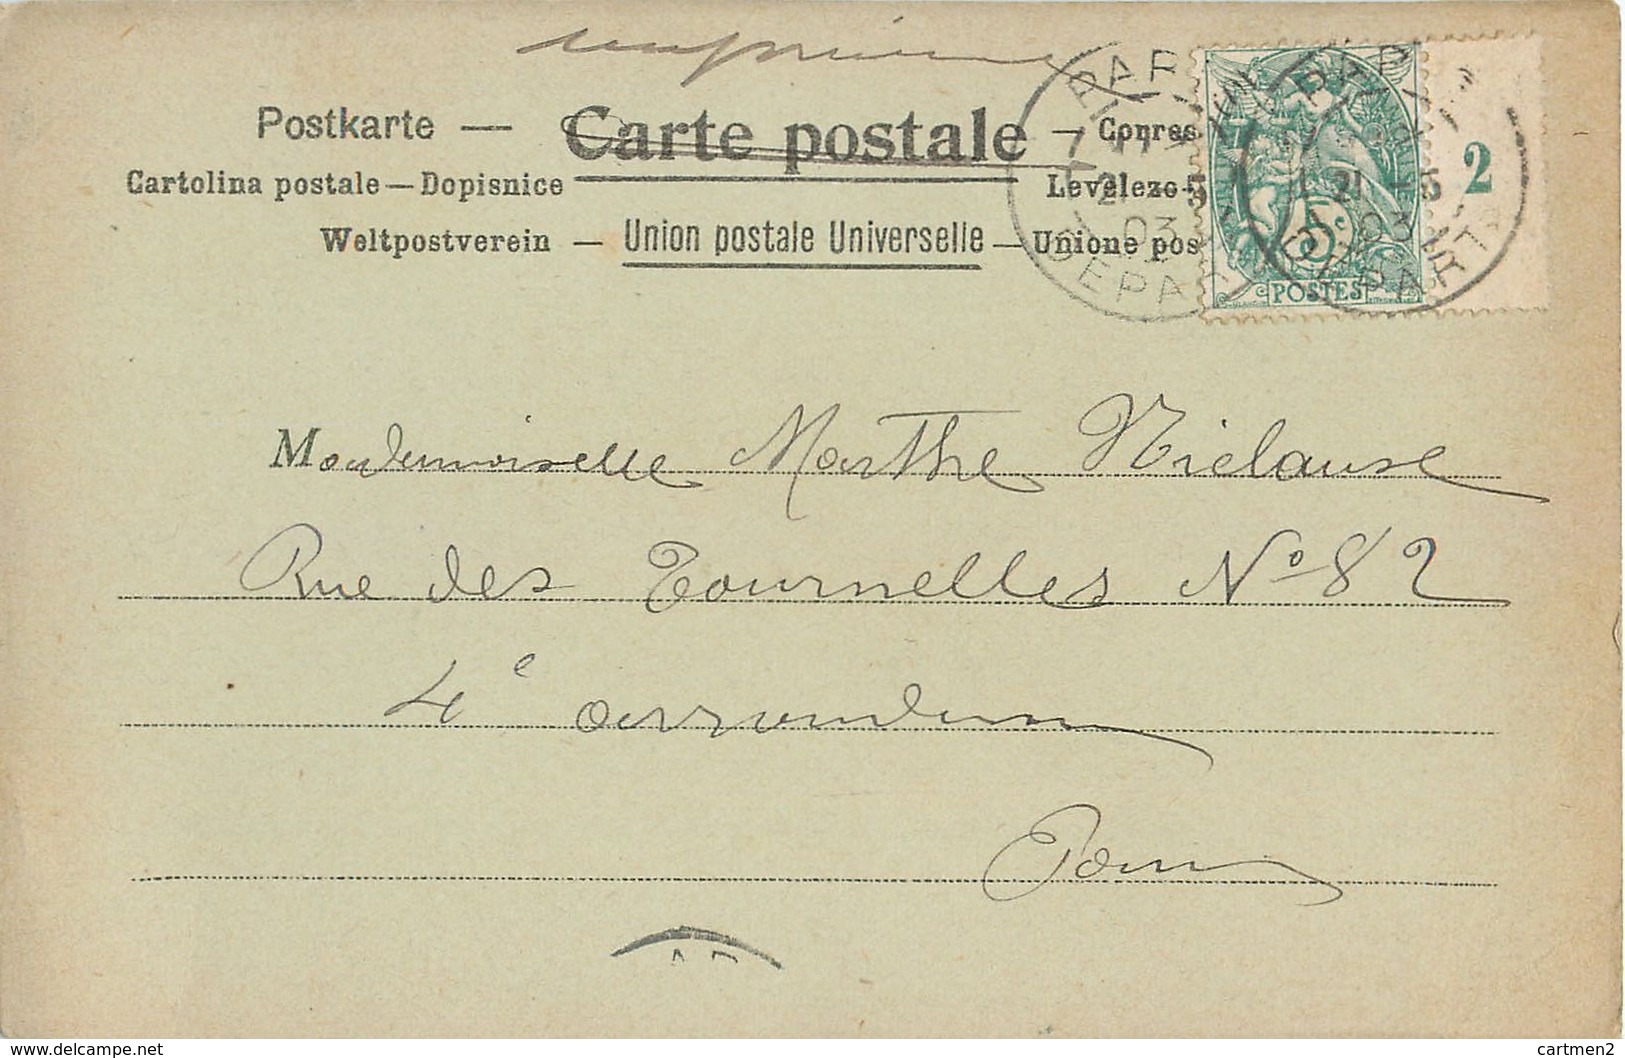 imprimé
Postkarte — Carte postale — Corres
Cartolina postale — Dopisnice Levelezo-
Weltpostverein — Union postale Universelle — Unione pos
PARIS
7
21 - 5
03
DEPART
21 5
DEPART
5c
POSTES
2
Mademoiselle Marthe Nielause
Rue des Tournelles No 82
4e arrondissem
Paris
delcampe.net
cartmen2